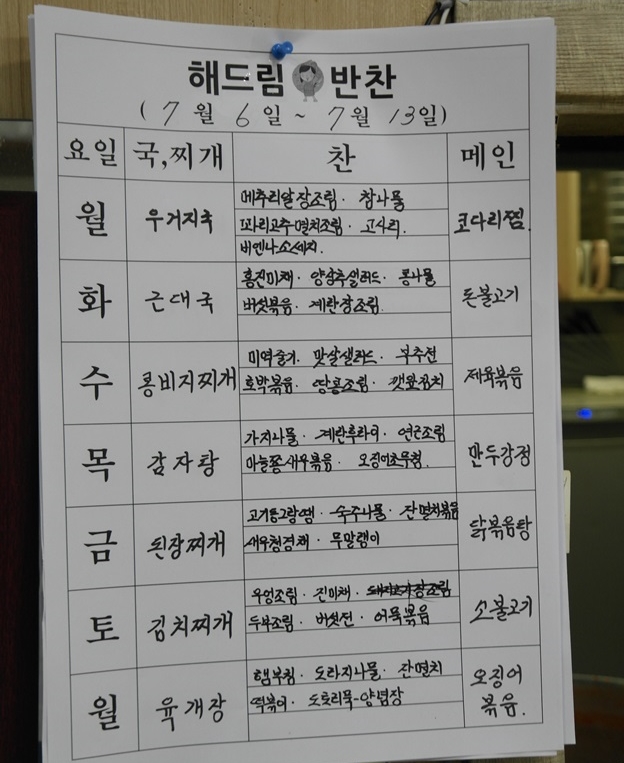 해드림 반찬
( 7 월 6 일 ~ 7 월 13일)
요일 국,찌개 찬 메인
월 우거지국 메추리알장조림 · 참나물 코다리찜.
꽈리고추멸치조림 · 고사리.
비엔나소세지.
화 근대국 홍진미채 · 양상추샐러드 · 콩나물 돈불고기
버섯볶음 · 계란장조림.
수 콩비지찌개 미역줄기. 맛살샐러드 · 부추전 제육볶음
호박볶음 · 땅콩조림 · 깻잎김치
목 감자탕 가지나물 · 계란후라이 · 연근조림 만두강정
마늘쫑새우볶음 · 오징어초무침.
금 된장찌개 고기동그랑땡 · 숙주나물 · 잔멸치볶음 닭볶음탕
새우청경채 · 무말랭이
토 김치찌개 우엉조림 · 진미채 · 장조림 소불고기
두부조림 · 버섯전 · 어묵볶음
월 육개장 햄부침 · 도라지나물 · 잔멸치 오징어
떡볶이 · 도토리묵-양념장 볶음.